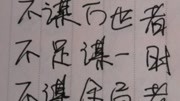 不谋万世者
不足谋一时
不谋全局者